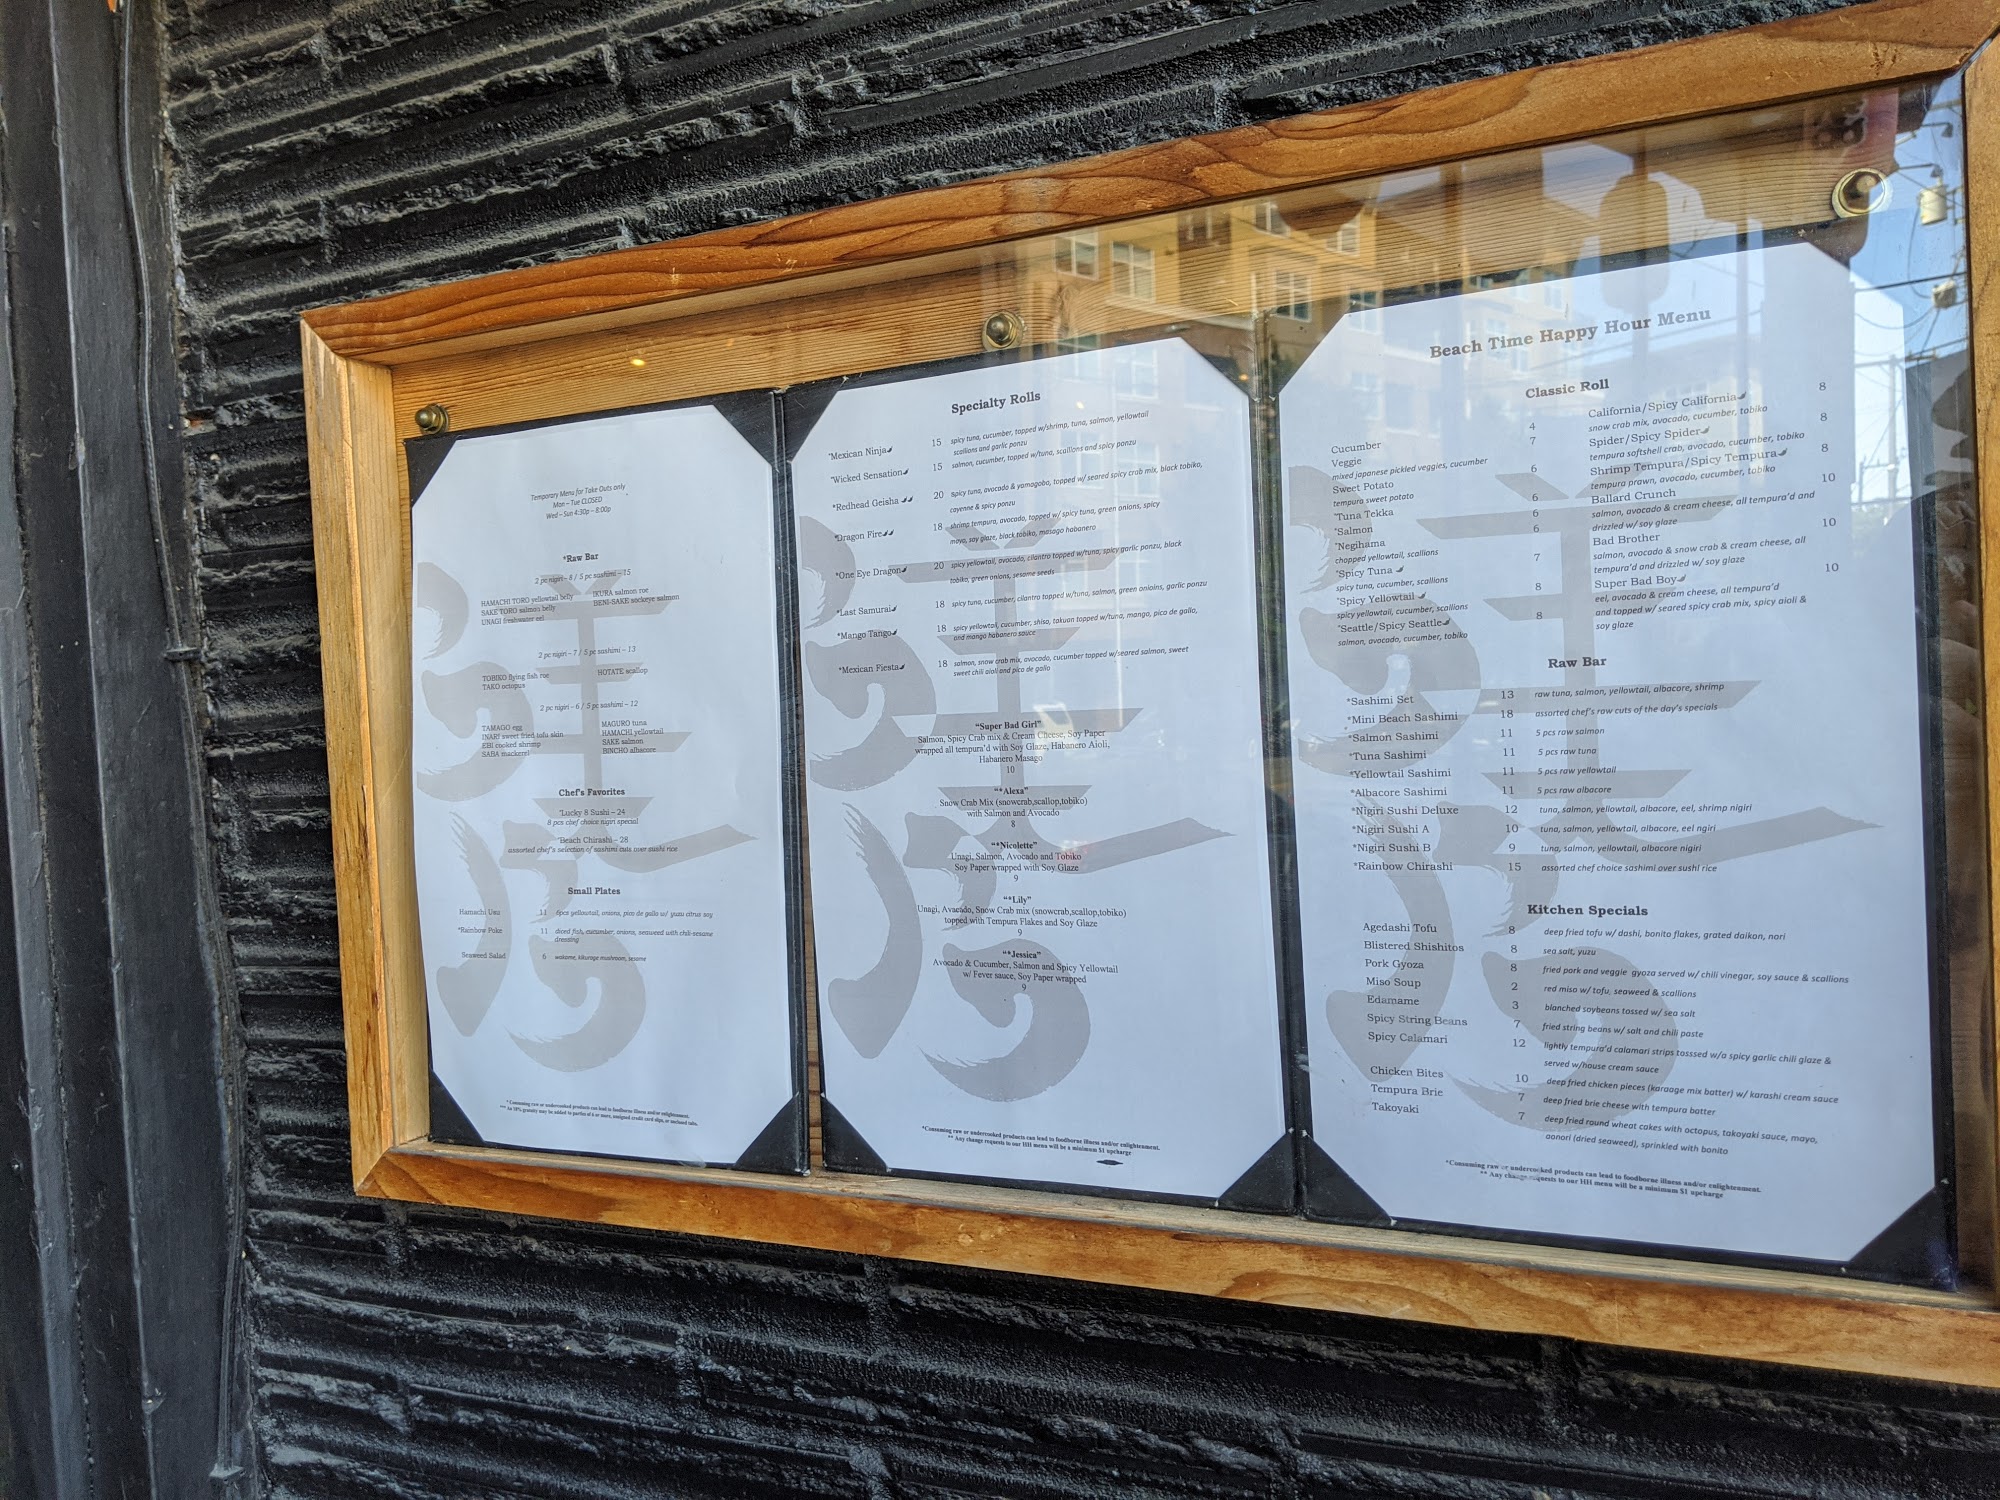 Temporary Menu for Take Outs only
Mon – Tue CLOSED
Wed – Sun 4:30p – 8:00p
*Raw Bar
2 pc nigiri – 8 / 5 pc sashimi – 15
HAMACHI TORO yellowtail belly IKURA salmon roe
SAKE TORO salmon belly BENI-SAKE sockeye salmon
UNAGI freshwater eel
2 pc nigiri – 7 / 5 pc sashimi – 13
TOBIKO flying fish roe HOTATE scallop
TAKO octopus
2 pc nigiri – 6 / 5 pc sashimi – 12
TAMAGO egg MAGURO tuna
INARI sweet fried tofu skin HAMACHI yellowtail
EBI cooked shrimp SAKE salmon
SABA mackerel BINCHO albacore
Chef's Favorites
*Lucky 8 Sushi – 24
8 pcs chef choice nigiri special
*Beach Chirashi – 28
assorted chef's selection of sashimi cuts over sushi rice
Small Plates
Hamachi Usu 11 6pcs yellowtail, onions, pico de gallo w/ yuzu citrus soy
*Rainbow Poke 11 diced fish, cucumber, onions, seaweed with chili-sesame
dressing
Seaweed Salad 6 wakame, kikurage mushroom, sesame
* Consuming raw or undercooked products can lead to foodborne illness and/or enlightenment.
*** An 18% gratuity may be added to parties of 6 or more, unsigned credit card slips, or unclosed tabs.
Specialty Rolls
*Mexican Ninja 15 spicy tuna, cucumber, topped w/shrimp, tuna, salmon, yellowtail
scallions and garlic ponzu
*Wicked Sensation 15 salmon, cucumber, topped w/tuna, scallions and spicy ponzu
*Redhead Geisha 20 spicy tuna, avocado & yamagobo, topped w/ seared spicy crab mix, black tobiko,
cayenne & spicy ponzu
*Dragon Fire 18 shrimp tempura, avocado, topped w/ spicy tuna, green onions, spicy
mayo, soy glaze, black tobiko, masago habanero
*One Eye Dragon 20 spicy yellowtail, avocado, cilantro topped w/tuna, spicy garlic ponzu, black
tobiko, green onions, sesame seeds
*Last Samurai 18 spicy tuna, cucumber, cilantro topped w/tuna, salmon, green onioins, garlic ponzu
*Mango Tango 18 spicy yellowtail, cucumber, shiso, takuan topped w/tuna, mango, pico de gallo,
and mango habanero sauce
*Mexican Fiesta 18 salmon, snow crab mix, avocado, cucumber topped w/seared salmon, sweet
sweet chili aioli and pico de gallo
"Super Bad Girl"
Salmon, Spicy Crab mix & Cream Cheese, Soy Paper
wrapped all tempura'd with Soy Glaze, Habanero Aioli,
Habanero Masago
10
"*Alexa"
Snow Crab Mix (snowcrab,scallop,tobiko)
with Salmon and Avocado
8
"*Nicolette"
Unagi, Salmon, Avocado and Tobiko
Soy Paper wrapped with Soy Glaze
9
"*Lily"
Unagi, Avacado, Snow Crab mix (snowcrab,scallop,tobiko)
topped with Tempura Flakes and Soy Glaze
9
"*Jessica"
Avocado & Cucumber, Salmon and Spicy Yellowtail
w/ Fever sauce, Soy Paper wrapped
9
*Consuming raw or undercooked products can lead to foodborne illness and/or enlightenment.
** Any change requests to our HH menu will be a minimum $1 upcharge
Beach Time Happy Hour Menu
Classic Roll
Cucumber 4
Veggie 7
mixed japanese pickled veggies, cucumber
Sweet Potato 6
tempura sweet potato
*Tuna Tekka 6
*Salmon 6
*Negihama 6
chopped yellowtail, scallions
*Spicy Tuna 7
spicy tuna, cucumber, scallions
*Spicy Yellowtail 8
spicy yellowtail, cucumber, scallions
*Seattle/Spicy Seattle 8
salmon, avocado, cucumber, tobiko
California/Spicy California 8
snow crab mix, avocado, cucumber, tobiko
Spider/Spicy Spider 8
tempura softshell crab, avocado, cucumber, tobiko
Shrimp Tempura/Spicy Tempura 8
tempura prawn, avocado, cucumber, tobiko
Ballard Crunch 10
salmon, avocado & cream cheese, all tempura'd and
drizzled w/ soy glaze
Bad Brother 10
salmon, avocado & snow crab & cream cheese, all
tempura'd and drizzled w/ soy glaze
Super Bad Boy 10
eel, avocado & cream cheese, all tempura'd
and topped w/ seared spicy crab mix, spicy aioli &
soy glaze
Raw Bar
*Sashimi Set 13 raw tuna, salmon, yellowtail, albacore, shrimp
*Mini Beach Sashimi 18 assorted chef's raw cuts of the day's specials
*Salmon Sashimi 11 5 pcs raw salmon
*Tuna Sashimi 11 5 pcs raw tuna
*Yellowtail Sashimi 11 5 pcs raw yellowtail
*Albacore Sashimi 11 5 pcs raw albacore
*Nigiri Sushi Deluxe 12 tuna, salmon, yellowtail, albacore, eel, shrimp nigiri
*Nigiri Sushi A 10 tuna, salmon, yellowtail, albacore, eel ngiri
*Nigiri Sushi B 9 tuna, salmon, yellowtail, albacore nigiri
*Rainbow Chirashi 15 assorted chef choice sashimi over sushi rice
Kitchen Specials
Agedashi Tofu 8 deep fried tofu w/ dashi, bonito flakes, grated daikon, nori
Blistered Shishitos 8 sea salt, yuzu
Pork Gyoza 8 fried pork and veggie gyoza served w/ chili vinegar, soy sauce & scallions
Miso Soup 2 red miso w/ tofu, seaweed & scallions
Edamame 3 blanched soybeans tossed w/ sea salt
Spicy String Beans 7 fried string beans w/ salt and chili paste
Spicy Calamari 12 lightly tempura'd calamari strips tosssed w/a spicy garlic chili glaze &
served w/house cream sauce
Chicken Bites 10 deep fried chicken pieces (karaage mix batter) w/ karashi cream sauce
Tempura Brie 7 deep fried brie cheese with tempura batter
Takoyaki 7 deep fried round wheat cakes with octopus, takoyaki sauce, mayo,
aonori (dried seaweed), sprinkled with bonito
*Consuming raw or undercooked products can lead to foodborne illness and/or enlightenment.
** Any change requests to our HH menu will be a minimum $1 upcharge